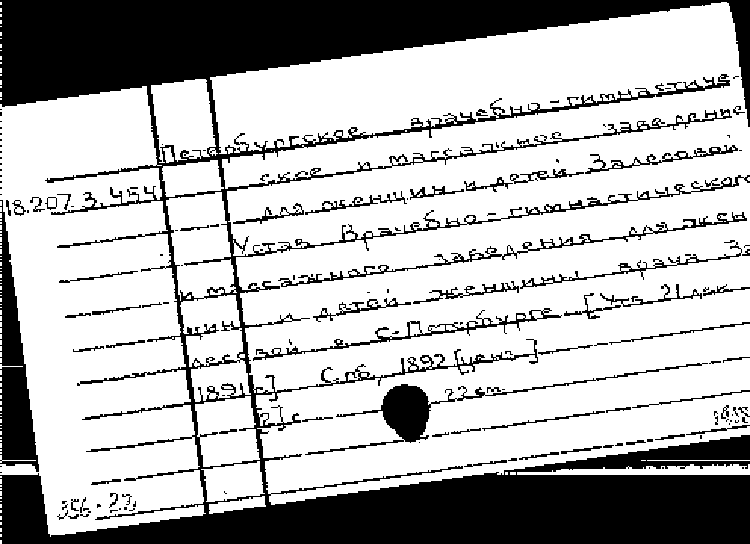 Петербургское врачебно-гимнастиче-
ское и массажное заведение
18.207.3.454
для женщин и детей Залесовой
Устав Врачебно-гимнастического
и массажного заведения для жен
щин и детей женщины врача За
лесовой в С-Петербурге. [Утв. 21 дек
1891 г.] Спб, 1892 [ценз.]
[2] с. 22 см.
356-22